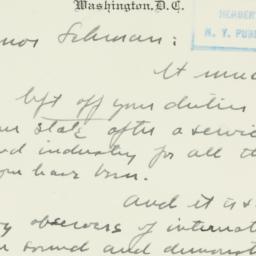 Washington, D.C.
HERBERT
N. Y. PUB
nor Lehman:
It must
left off your duties
state after a service
industry for all th
you have been.
And it is
observers of internat
sound and